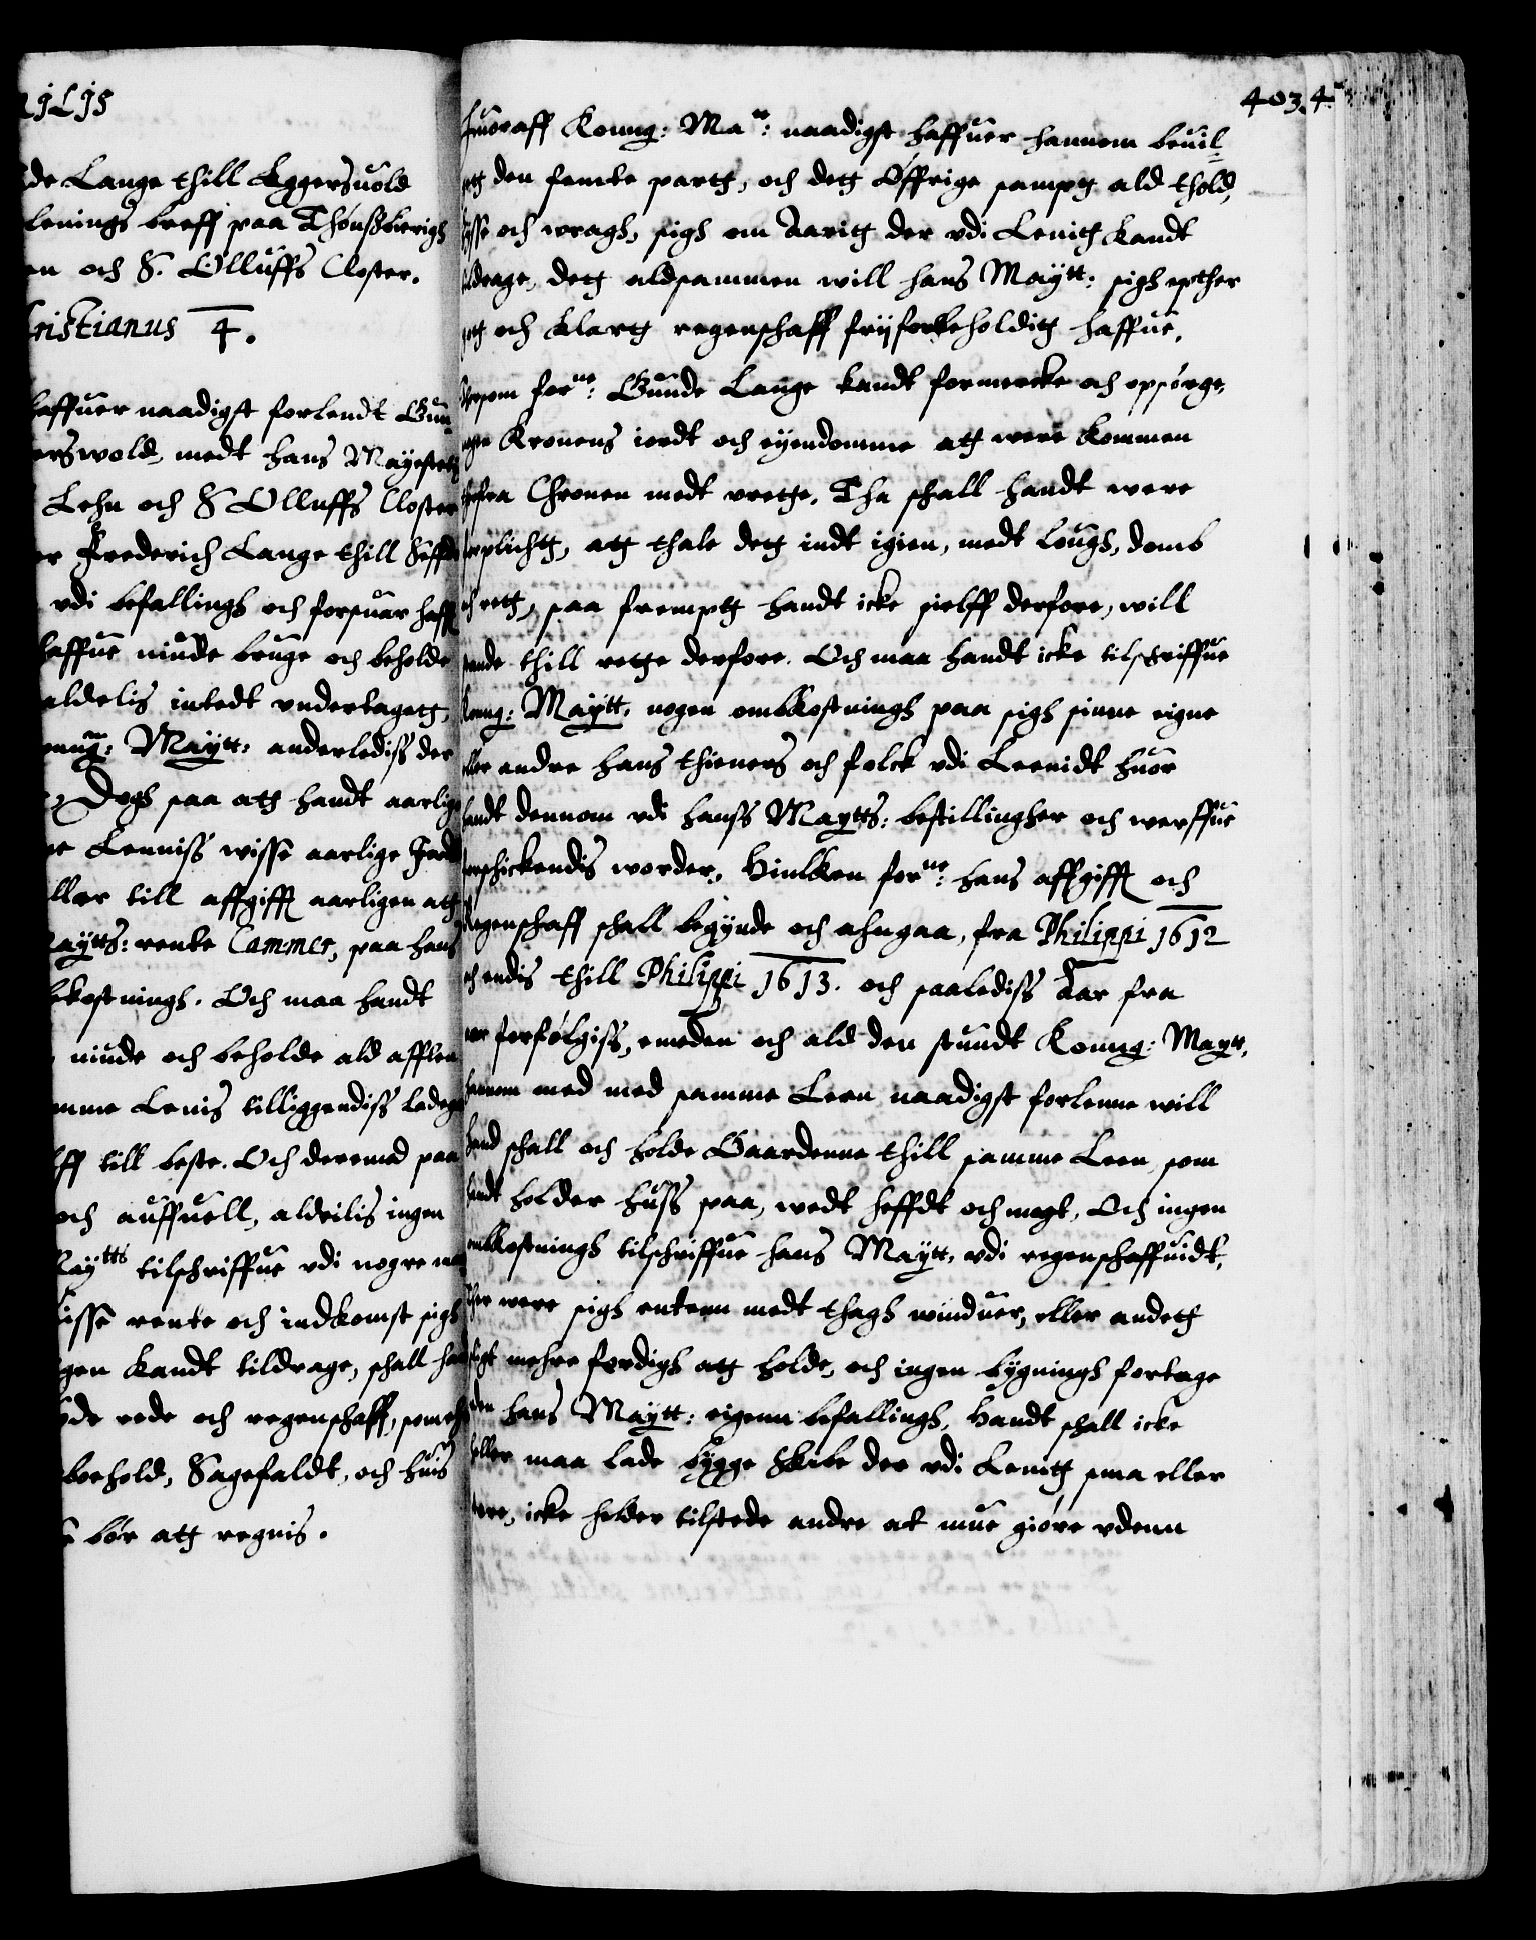 de Lange thill Eggersuold
lenings breff paa Thønßbierigs
en och S. Olluffs Closter.
ristianus 4.
haffuer naadigst forlendt Gun
erswold, medt hans Mayestets
Lehn och S Olluffs Closter
er Frederich Lange thill
vdi befallings och forsuar haff
haffue niude bruge och beholde
aldelis intedt vndertagett,
Maytt: anderlediss der
Dogh saa att handt aarlige
Lenniss wisse aarlige
ller till affgifft aarligen att
aytts: rente Cammer, paa hans
bekostnings. Och maa handt
niude och beholde ald afflen
mme Lenis tilliggendiss ladegd
ff till beste. Och deremod paa
och auffuell, aldeilis ingen
Maytts tilschriffue vdi nogre
wisse rente och indkomst sigh
gen kandt tildrage, shall ha
rede och regenschaff, som
behold, Sagefaldt, och huis
bør att regnis.
403. 4.
Huoraff Konng: Matt: naadigst haffuer hannom beuil-
gett den femte partt, och dett Øffrige sampt ald thold,
och wragh, sigh om Aaritt der vdi Lenitt kandt
ildrage, dett aldsammen will hans Maytt: sigh epther
och klartt regenschaff frij forbeholditt haffue.
Dersom forne: Gunde Lange kandt formercke och opsørge,
nogen Kronens iordt och eyendomme att were kommen
thefra Chronen medt vrette. Tha schall handt were
forplicht, att thale dett indt igien, medt lough, domb
och rett, saa fremptt handt icke sielff derfore, will
stande thill rette derfore. Och maa handt icke tilschriffue
Konng: Maytt, nogen ombkostnings paa sigh sinne eigne
eller andre hans thieners och folck vdi Leenidt huor
handt dennom vdi hanss Maytts: bestillingher och werffue
forschickendis worder. Huilken forne: hans affgifft och
Regenschaff shall begynde och ahngaa, fra Philippi 1612
och endis thill Philippi 1613. och saalediss Aar fra
aar forfølgiss, emeden och ald den stundt Konng: Maytt,
hannom med med samme Leen naadigst forlenne will
Hand shall och holde Gaardenne thill samme Leen som
handt holder huss paa, wedt heffdt och magt, Och ingen
ombkostnings tilschriffue hans Maytt, vdi regenschaffuidt,
Ther were sigh entenn medt thagh winduer, eller andett
sligt mehre ferdigh att holde, och ingen bygnings fortage
vden hans Maytt: eigenn befallings, Handt shall icke
heller maa lade bygge Skibe der vdi Lenitt smaa eller
store, icke helder tilstede andre at mue giøre vdenn